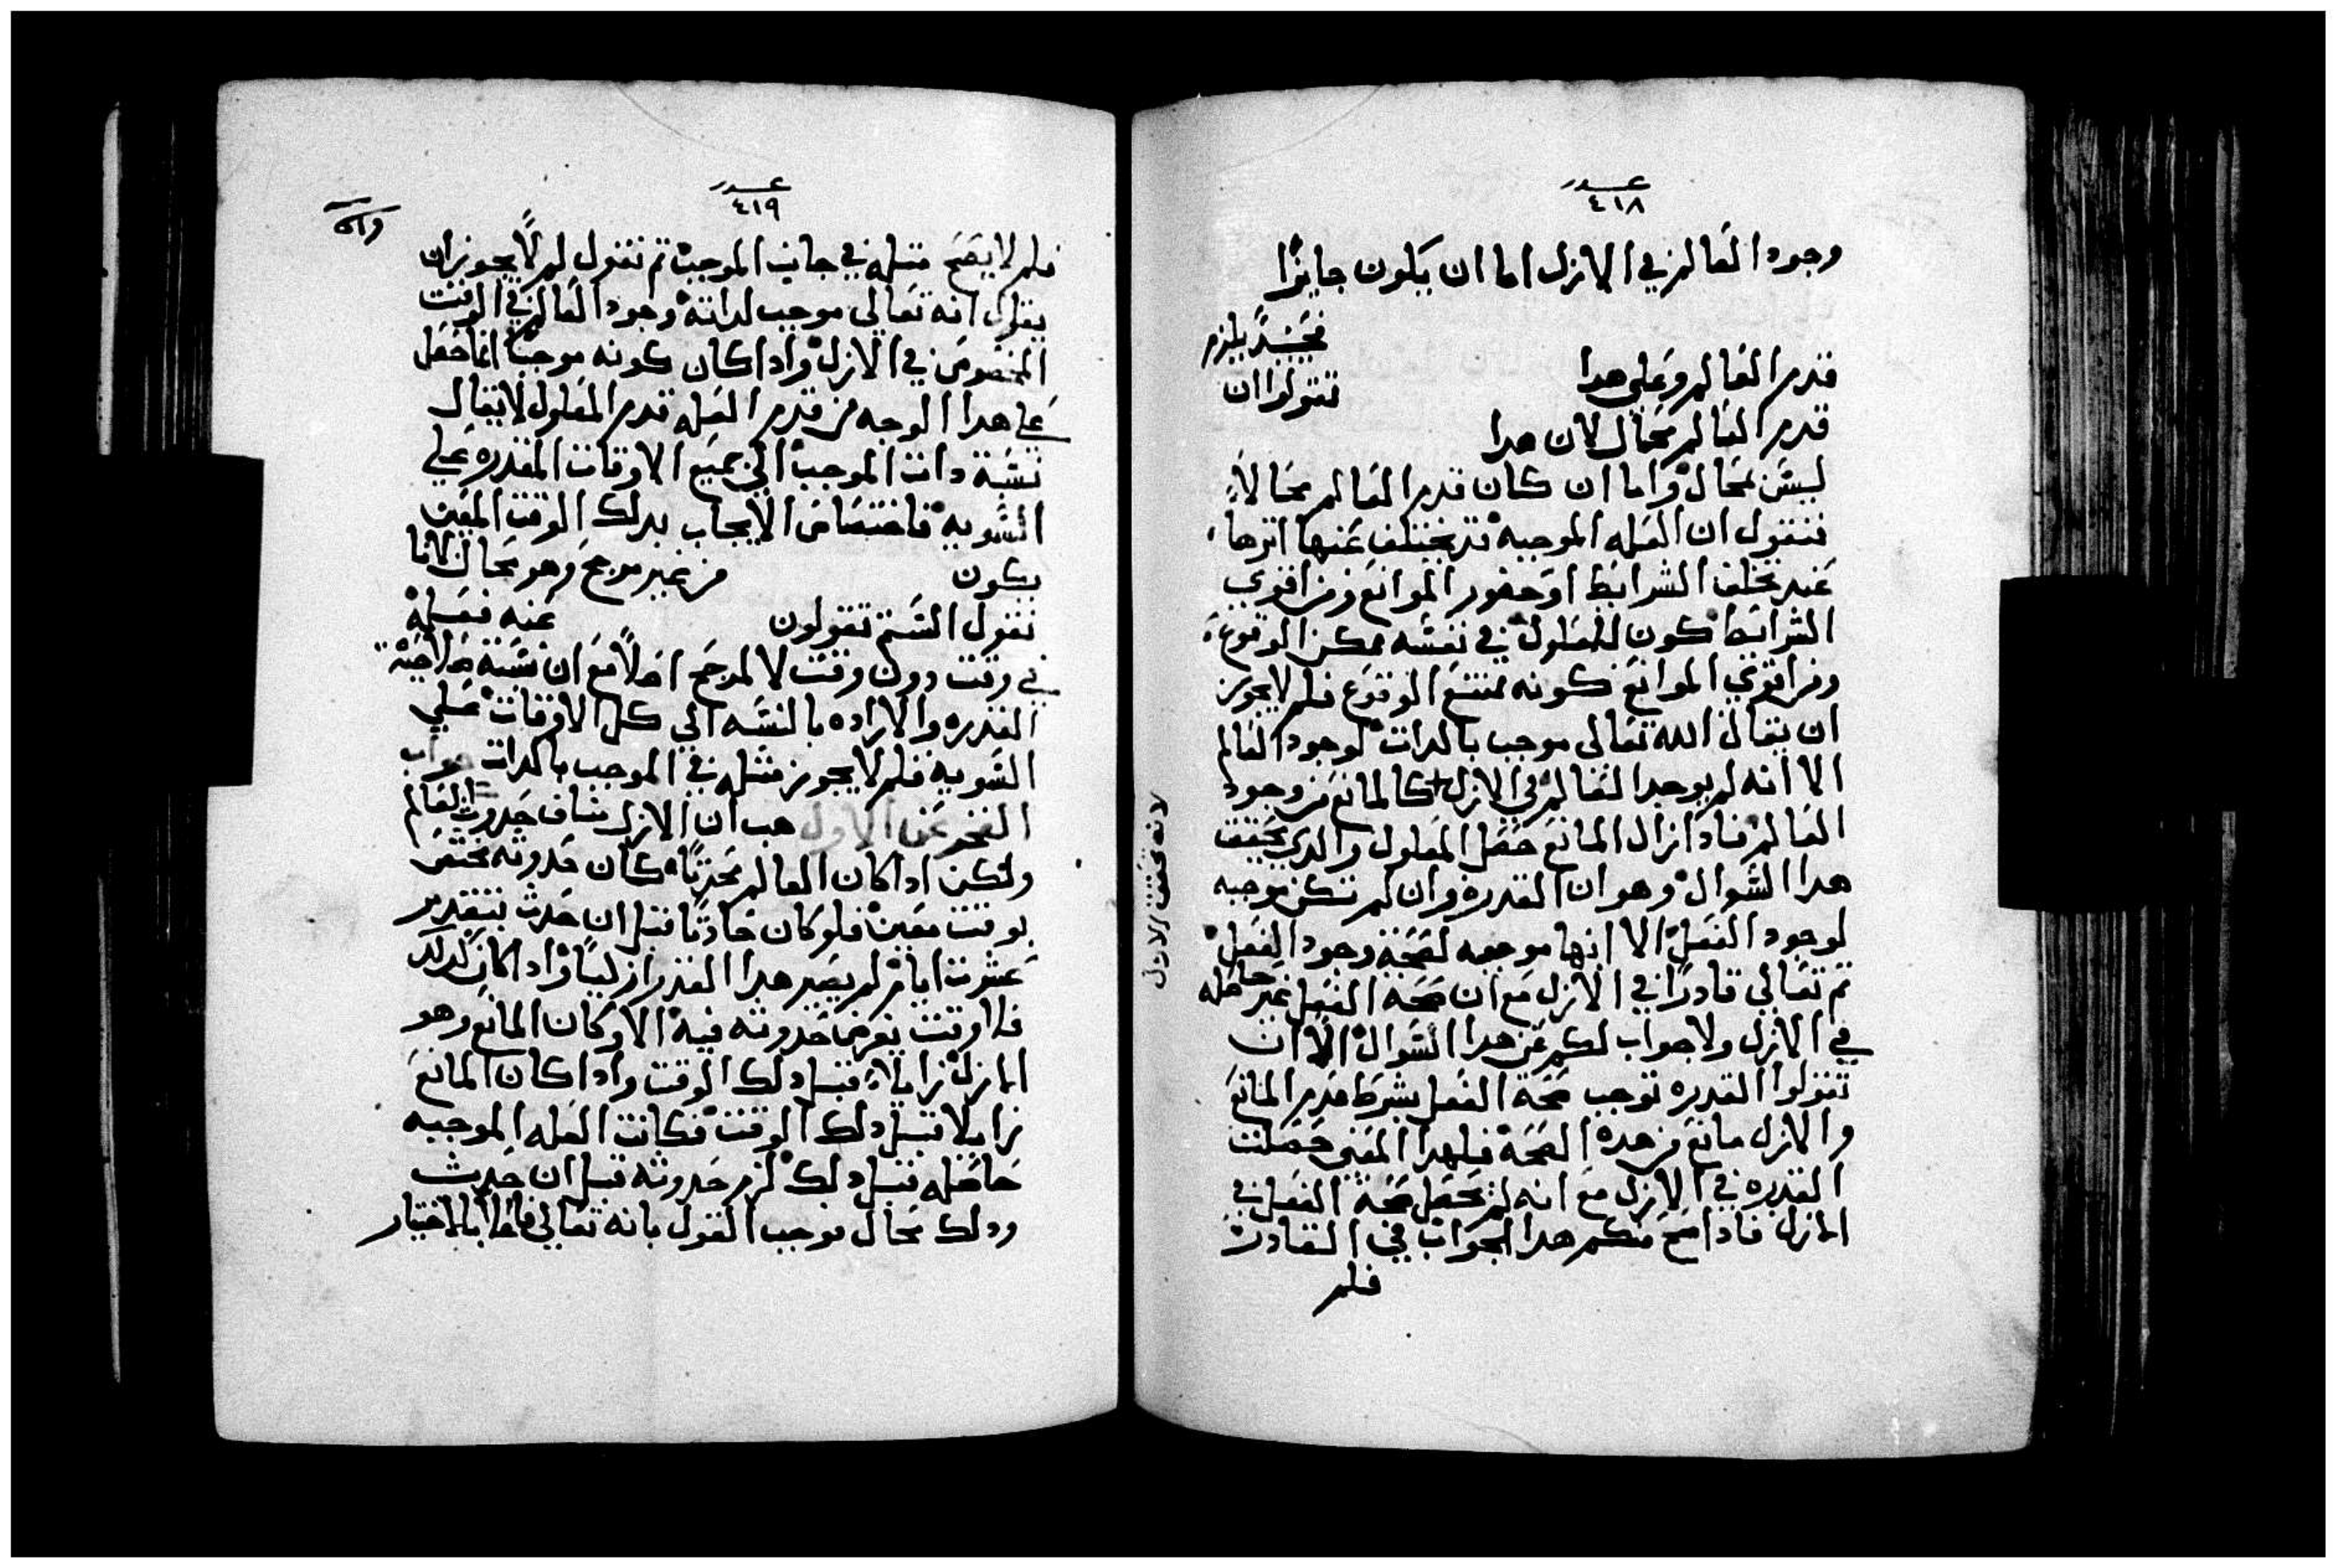 عدد
٤١٨
وجود العالم في الازل اما ان يكون جايزًا
فحينيدً يلزم
قدم العالم وعلى هدا
تقولوا ان
قدم العالم محال لان هدا
ليس بمحال واما ان كان قدم العالم محالاً
فنقول ان العله الموجبه قد يختلف عنها اثرها
عند تخلف الشرايط او حضور الموانع ومن اقوي
الشرايط كون المعلول في نفسه ممكن الوقوع
ومن اقوي الموانع كونه ممتنع الوقوع فلم لا يجوز
ان يقال الله تعالى موجب بالدات لوجود العالم
الا انه لم يوجد العالم في الازل كالمانع من وجود
العالم فادا زال المانع حصل المعلول والدي يحقق
هدا السوال وهو ان القدره وان لم تكن موجبه
لوجود الفعل الا انها موجبه لصحة وجود الفعل
ثم تعالي قادرًا في الازل مع ان صحة الفعل غير حاصله
في الازل ولا جواب لكم عن هدا السوال الا ان
تقولوا القدره توجب صحة الفعل بشرط عدم المانع
والازل مانع من هده الصحة فلهدا المعني حصلت
القدره في الازل مع انه لم تحصل صحة الفعل في
الازل فادا صح منكم هدا الجواب في القادر
فلم
عدد
٤١٩
فلم لا يصح مثله في جانب الموجب ثم نقول لم لا يجوز ان
يقال انه تعالى موجب لداته وجود العالم في الوقت
المخصوص في الازل وادا كان كونه موجبًا انما حصل
على هدا الوجه من قدم العله قدم المعلول لا يقال
نسبة دات الموجب الي جميع الاوقات المقدره علي
السويه فاختصاص الايجاب بدلك الوقت المعين
يكون من غير مرجح وهو محال لانا
نقول الستم تقولون عنه فعله
في وقت دون وقت لا لمرجح اصلاً مع ان نسبة صلاحية
القدره والاراده بالنسبه الي كل الاوقات علي
السويه فلم لا يجوز مثله في الموجب بالدات جواب
الفخر عن الاول هب ان الازل مناف حدوث العالم
ولكن ادا كان العالم محدثًا كان حدوثه مختص
بوقت معين فلو كان حادثًا قبل ان حدث بتقدير
عشرت ايام لم يصير هدا القدر ازليًا وادا كان كدلك
فلا وقت يفرض حدوثه فيه الا وكان المانع وهو
الازل زايلاً قبل دلك الوقت وادا كان المانع
زايلا قبل دلك الوقت فكانت العله الموجبه
حاصله قبل دلك لزم حدوثه قبل ان حدث
ودلك محال فوجب القول بانه تعالى فاعلاً بالاختيار